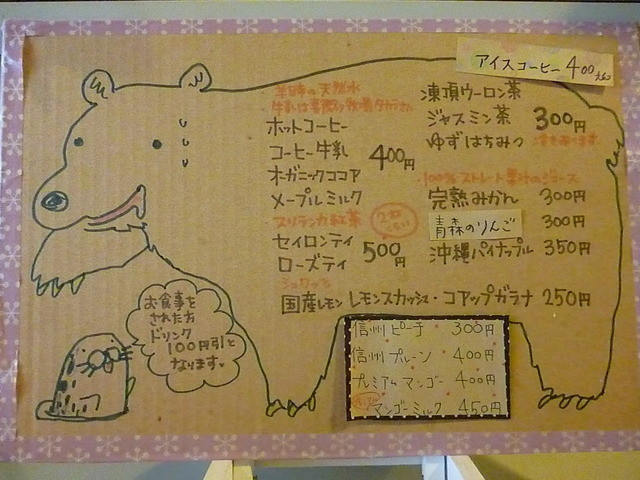 アイスコーヒー 400
の天然水
ホットコーヒー
コーヒー牛乳
オーガニックココア
メープルミルク
400円
スリランカ紅茶
セイロンティ
ローズティ
500円
凍頂ウーロン茶
ジャスミン茶
ゆずはちみつ
300円
100%ストレート果汁のジュース
完熟みかん 300円
青森のりんご 300円
沖縄パイナップル 350円
国産レモン レモンスカッシュ・コアップガラナ 250円
信州 ピーチ 300円
信州 プルーン 400円
プレミアム マンゴー 400円
マンゴーミルク 450円
お食事を
された方
ドリンク
100円引と
なります。